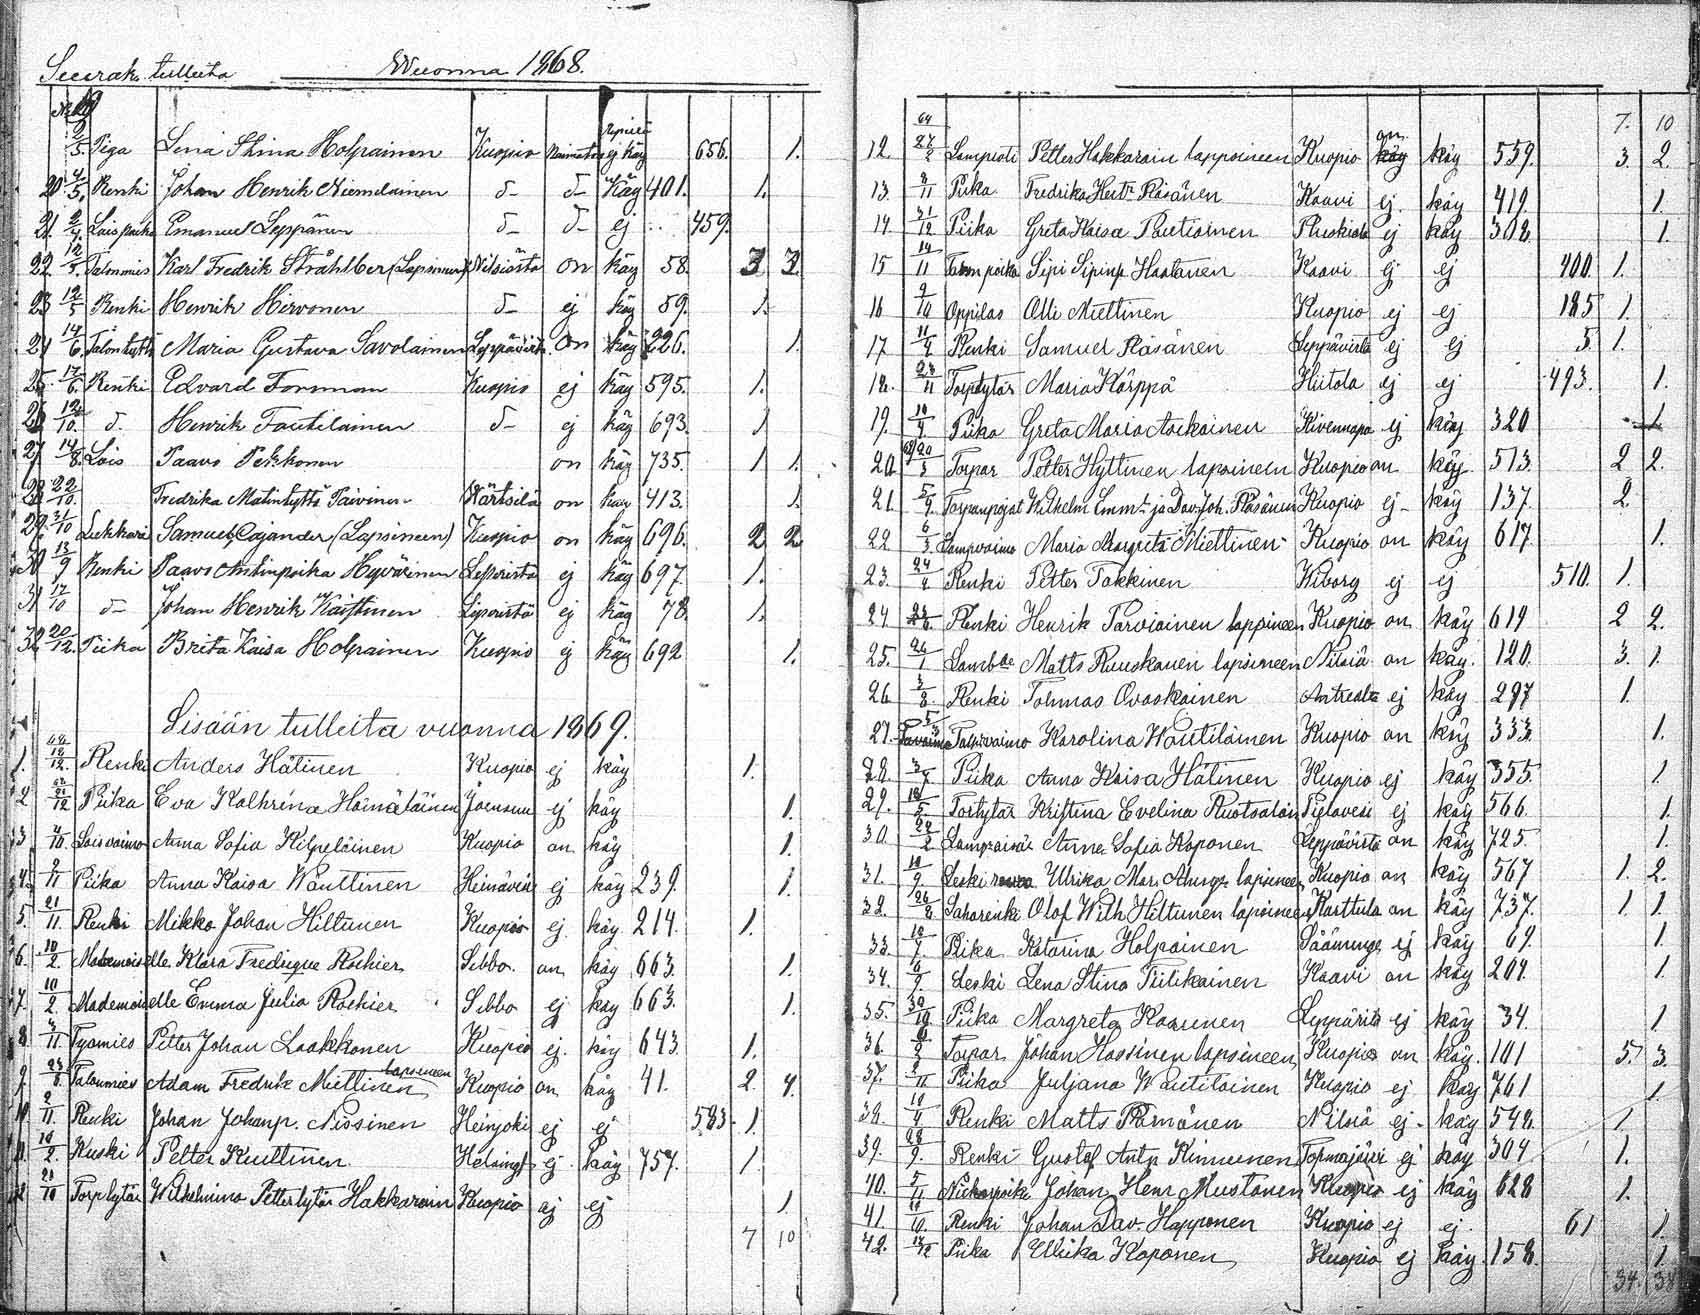 Seurak. tulleita Wuonna 1868.
5. Piga Lena Stina Holpainen Kuopio Naimaton ej käy 656. 1.
20 4/5. Renki Johan Henrik Niemelainen d– d– käy 401. 1.
21. 2/4. Loispoika Emanuel Leppänen d– d– ej 459.
22 12/5. Talonmies Karl Fredrik Stråhlber (Lapsineen) Nilsiästa on käy 58. 3 3.
23 12/5 Renki Henrik Hirvonen d– ej käy 59. 1.
24 14/6. Talontyttö Maria Gustava Savolainen Leppävirt. on käy 226. 1.
25. 17/6. Renki Edvard Forsman Kuopio ej käy 595. 1.
26 12/10. d. Henrik Tautilainen d– ej käy 693. 1
27 14/8. Lois Paavo Pekkonen on käy 735. 1 1.
28 22/10. Fredrika Matintyttö Päivinen Värtsilä on käy 413. 1.
29. 31/10 Lukkari Samuel Cajander (Lapsineen) Kuopio on käy 696. 2 2
30 13/9 Renki Paavo Antinpoika Hyvärinen Leppävirta ej käy 697. 1.
31 17/10 d– Johan Henrik Väistinen Leppävirta ej käy 78. 1.
32 20/12. Piika Brita Kaisa Holpainen Kuopio ej käy 692 1.
Sisään tulleita vuonna 1869.
1. 68 18/12. Renki Anders Hätinen Kuopio ej käy 1.
2 68 21/12 Piika Eva Kathrina Hämäläinen Joensuu ej käy 1.
3 4/10. Loisvaimo Anna Sofia Kilpeläinen Kuopio on käy 1.
4. 9/11 Piika Anna Kaisa Wauttinen Heinävesi ej käy 239. 1.
5. 21/11. Renki Mikko Johan Hiltunen Kuopio ej. käy 214. 1.
6. 10/2. Mademoiselle Klara Fredrique Rochier Sibbo. on käy 663. 1.
7. 10/2. Mademoiselle Emma Julia Rochier Sibbo ej käy 663. 1.
8. 4/11 Työmies Petter Johan Laakkonen Kuopio ej. käy 643 1.
9. 23/8. Talonmies Adam Fredrik Miettinen lapsineen Kuopio on käy 41. 2. 4.
10. 2/11 Renki Johan Johanp. Nissinen Heinjoki ej ej 583. 1.
11. 19/2. Kuski Petter Kuttinen Helsingf. ej. käy 757. 1.
12 21/10 Torptytär Wilhelmina Petterlytär Hakkarain Kuopio ej ej 1.
7 10
7. 10
12. 69 27/2 Lampuoti Petter Hakkarain lappsineen Kuopio on käy 559. 3. 2.
13. 2/11 Piika Fredrika Hertr. Räsänen Kaavi ej. käy 419. 1.
14. 31/12 Piika Greta Kaisa Pautiainen Ruskiala ej käy 308. 1.
15 14/11 Talonpoika Sipi Sipinp Haatanen Kaavi ej ej 400. 1.
16 9/10 Oppilas Olli Miettinen Kuopio ej ej 185 1.
17 11/4 Renki Samuel Räsänen Leppävirta ej ej 5 1.
18. 23/11 Torptytär Maria Kärppä Hiitola ej ej 493. 1.
19. 10/4. Piika Greta Maria Asikainen Kivennapa ej käy 320 1.
20. 20/3 Torpar Petter Hyttinen lapsineen Kuopio on käy. 513. 2 2.
21. 5/9 Torpanpojat Wilhelm Emm. ja Dav. Joh. Räsänen Kuopio ej– käy 137. 2.
22 6/3. Lampvaimo Maria Margreta Miettinen Kuopio on käy 617. 1.
23. 24/4 Renki Petter Takkinen Wiborg ej ej 510. 1.
24. 23/6. Renki Henrik Parviainen lappsineen Kuopio on käy 619 2 2.
25. 26/1 Lambde Matts Ruuskanen lapsineen Nilsiä on käy. 120. 3. 1.
26 3/8. Renki Tohmas Ovaskainen Antreala ej käy 297 1.
27. 5/3 Talpvaimo Karolina Wautilainen Kuopio on käy 333. 1.
28. 3/7 Piika Anna Kaisa Hätinen Kuopio ej käy 355. 1
29. 18/5. Tortytär Kristina Evelina Ruotsalain Pielavesi ej käy 566. 1.
30. 24/2 Anna Sofia Koponen Leppävirta on käy 725. 1.
31. 10/9. Leski Ulrika Mar. lapsineen Kuopio on käy 567 1. 2.
32. 26/8 Saharenki Olof Wilh Hiltunen lapsineen Karttula on käy 737. 1. 1.
33. 10/7. Piika Katarina Holpainen Sääminge ej käy 69. 1.
34. 6/9 Leski Lena Stina Tiilikainen Kaavi on käy 209. 1
35. 30/10. Piika Margreta Kaarunen Leppävirta ej käy 34. 1
36. 6/2 Torpar Johan Hassinen lapsineen Kuopio on käy. 101 5. 3.
37. 2/11 Piika Juljana Wautilainen Kuopio ej käy 761 1.
38. 10/4 Renki Matts Rämänen Nilsiä ej– käy 548. 1.
39. 28/9. Renki Gustaf Antp Kinnunen Tohmajärvi ej käy 304 1.
40. 5/11 Nikarpoika Johan Henr Mustonen Kuopio ej käy 628 1.
41. 11/10. Renki Johan Dav. Happonen Kuopio ej ej. 61 1.
42. 17/12 Piika Ulrika Koponen Kuopio ej käy. 158. 1.
34. 38